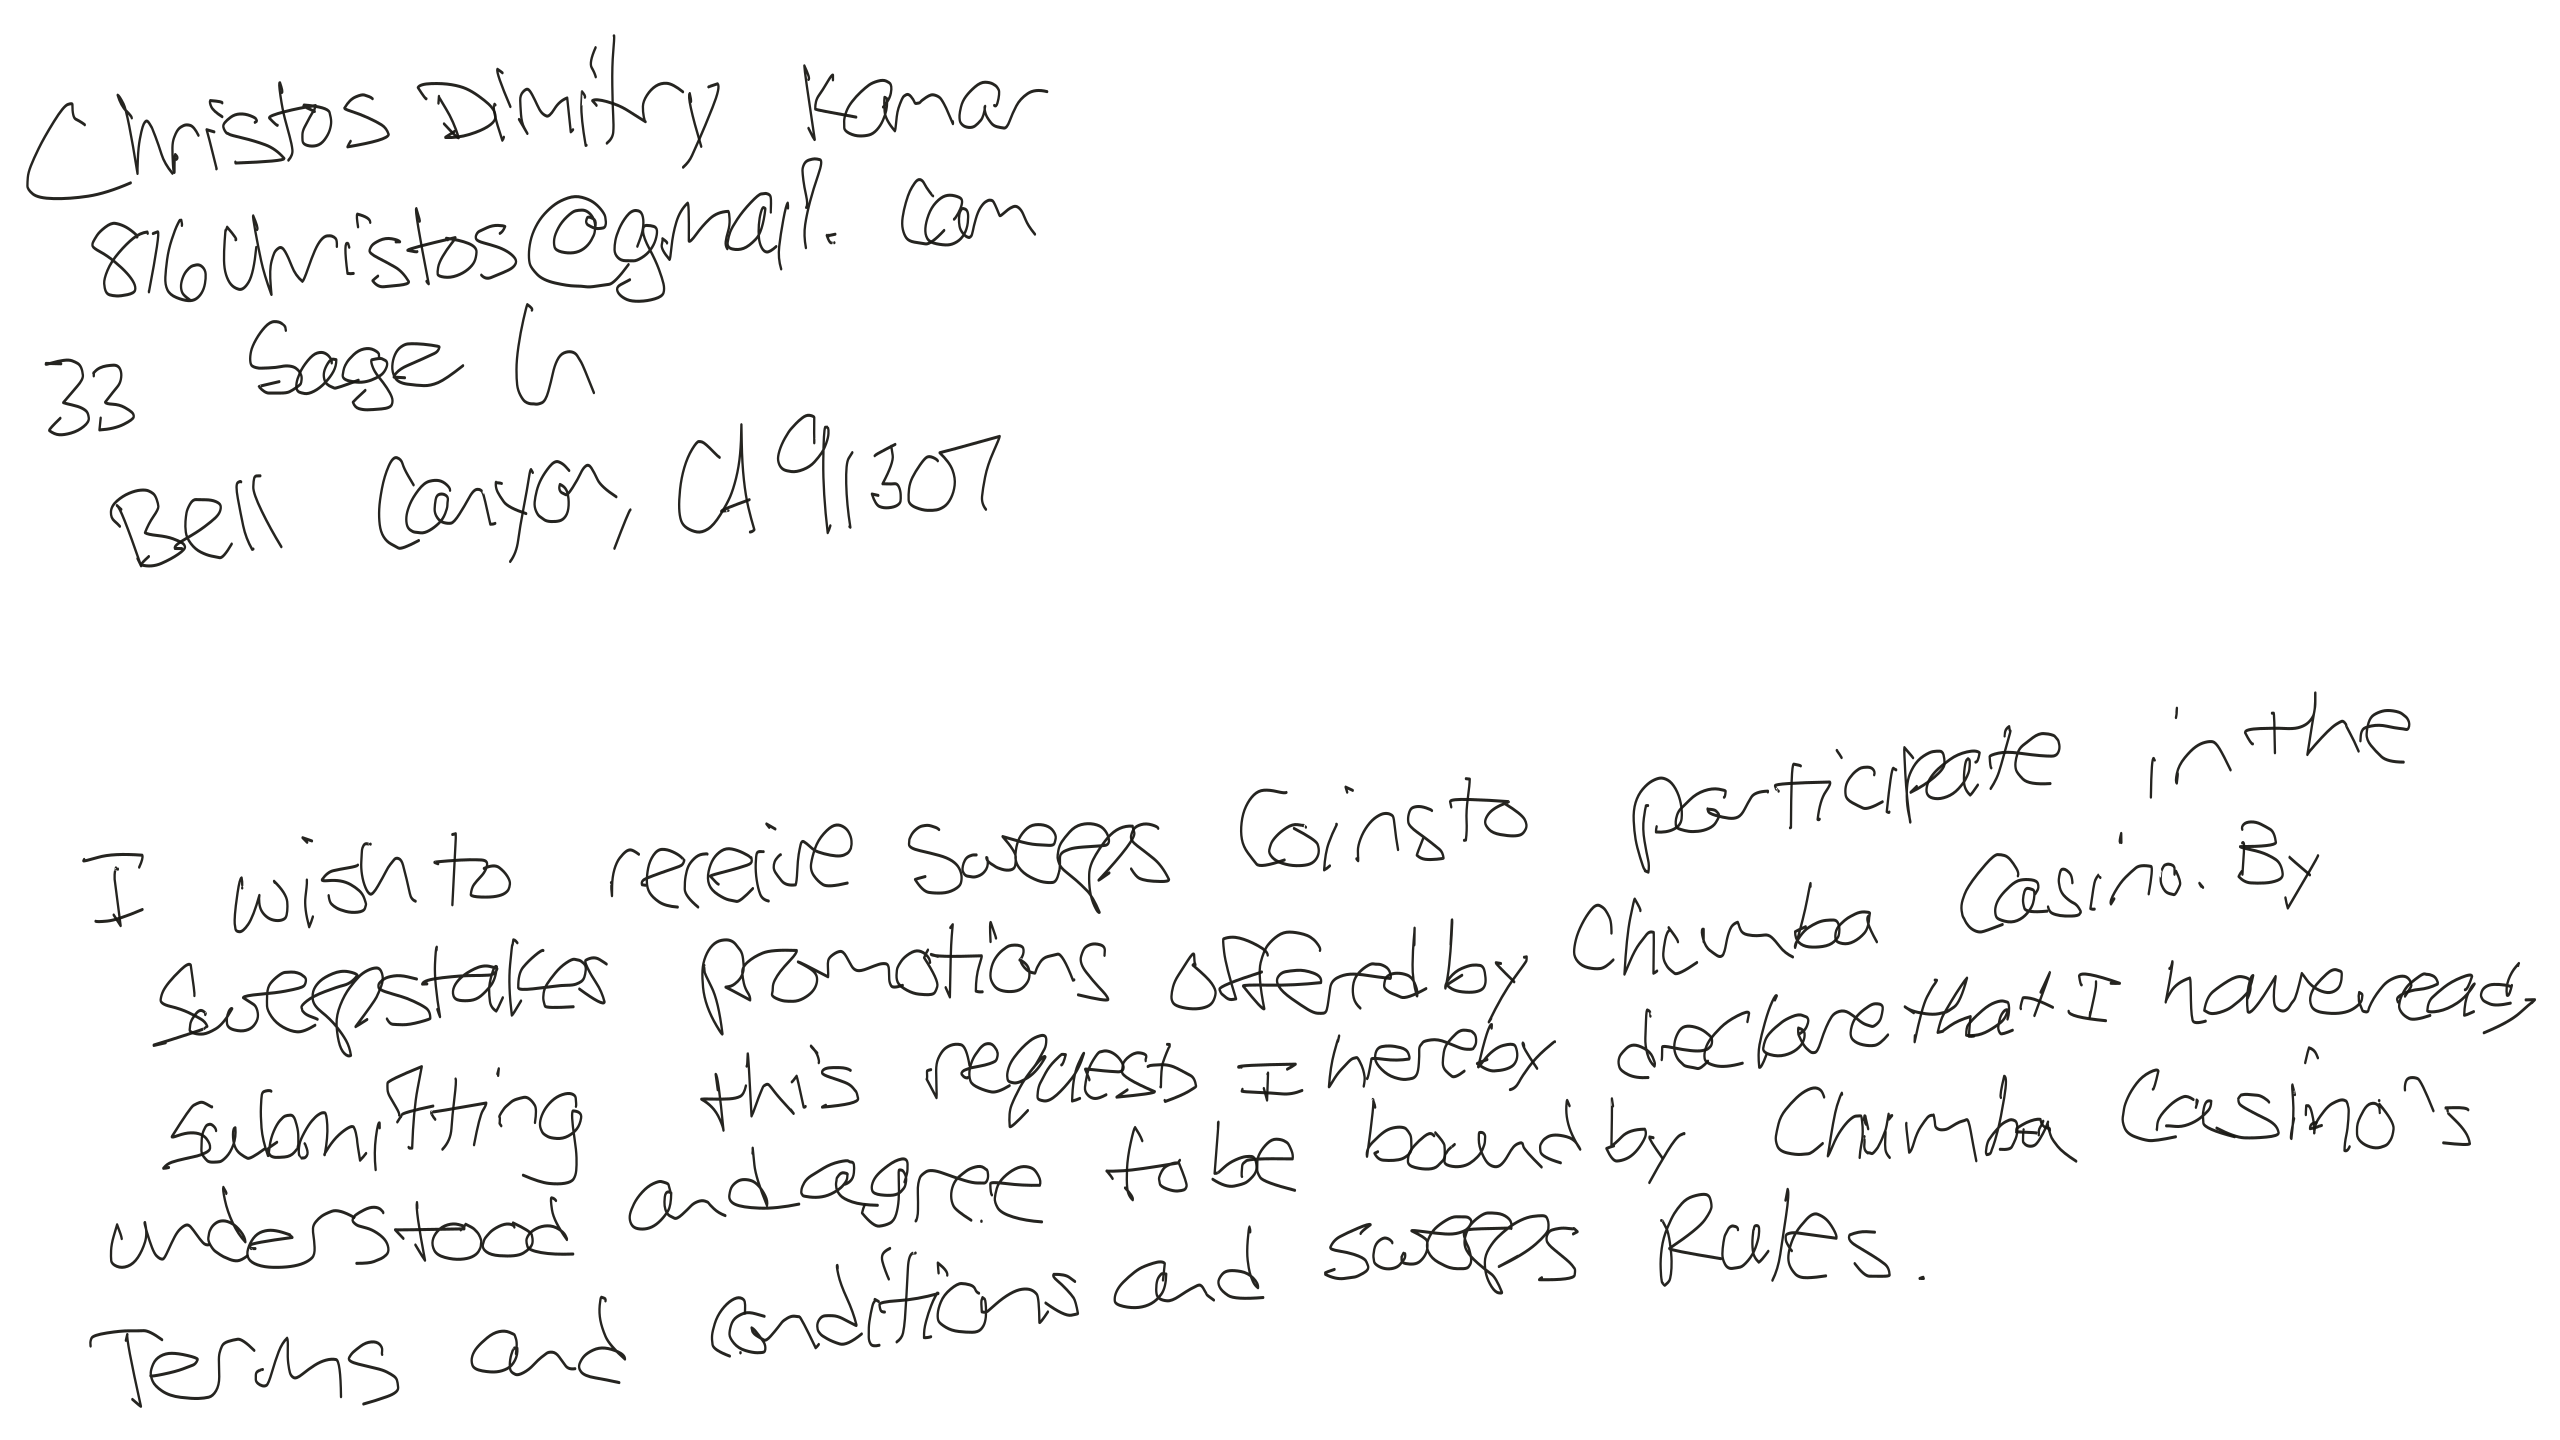 Christos Dimitry Kamar
816christos@gmail.com
33 Sage Ln
Bell Canyon, CA 91307
I wish to receive Sweeps Coins to participate in the
Sweepstakes promotions offered by Chumba Casino. By
submitting this request I hereby declare that I have read,
understood and agree to be bound by Chumba Casino's
Terms and conditions and sweeps Rules.